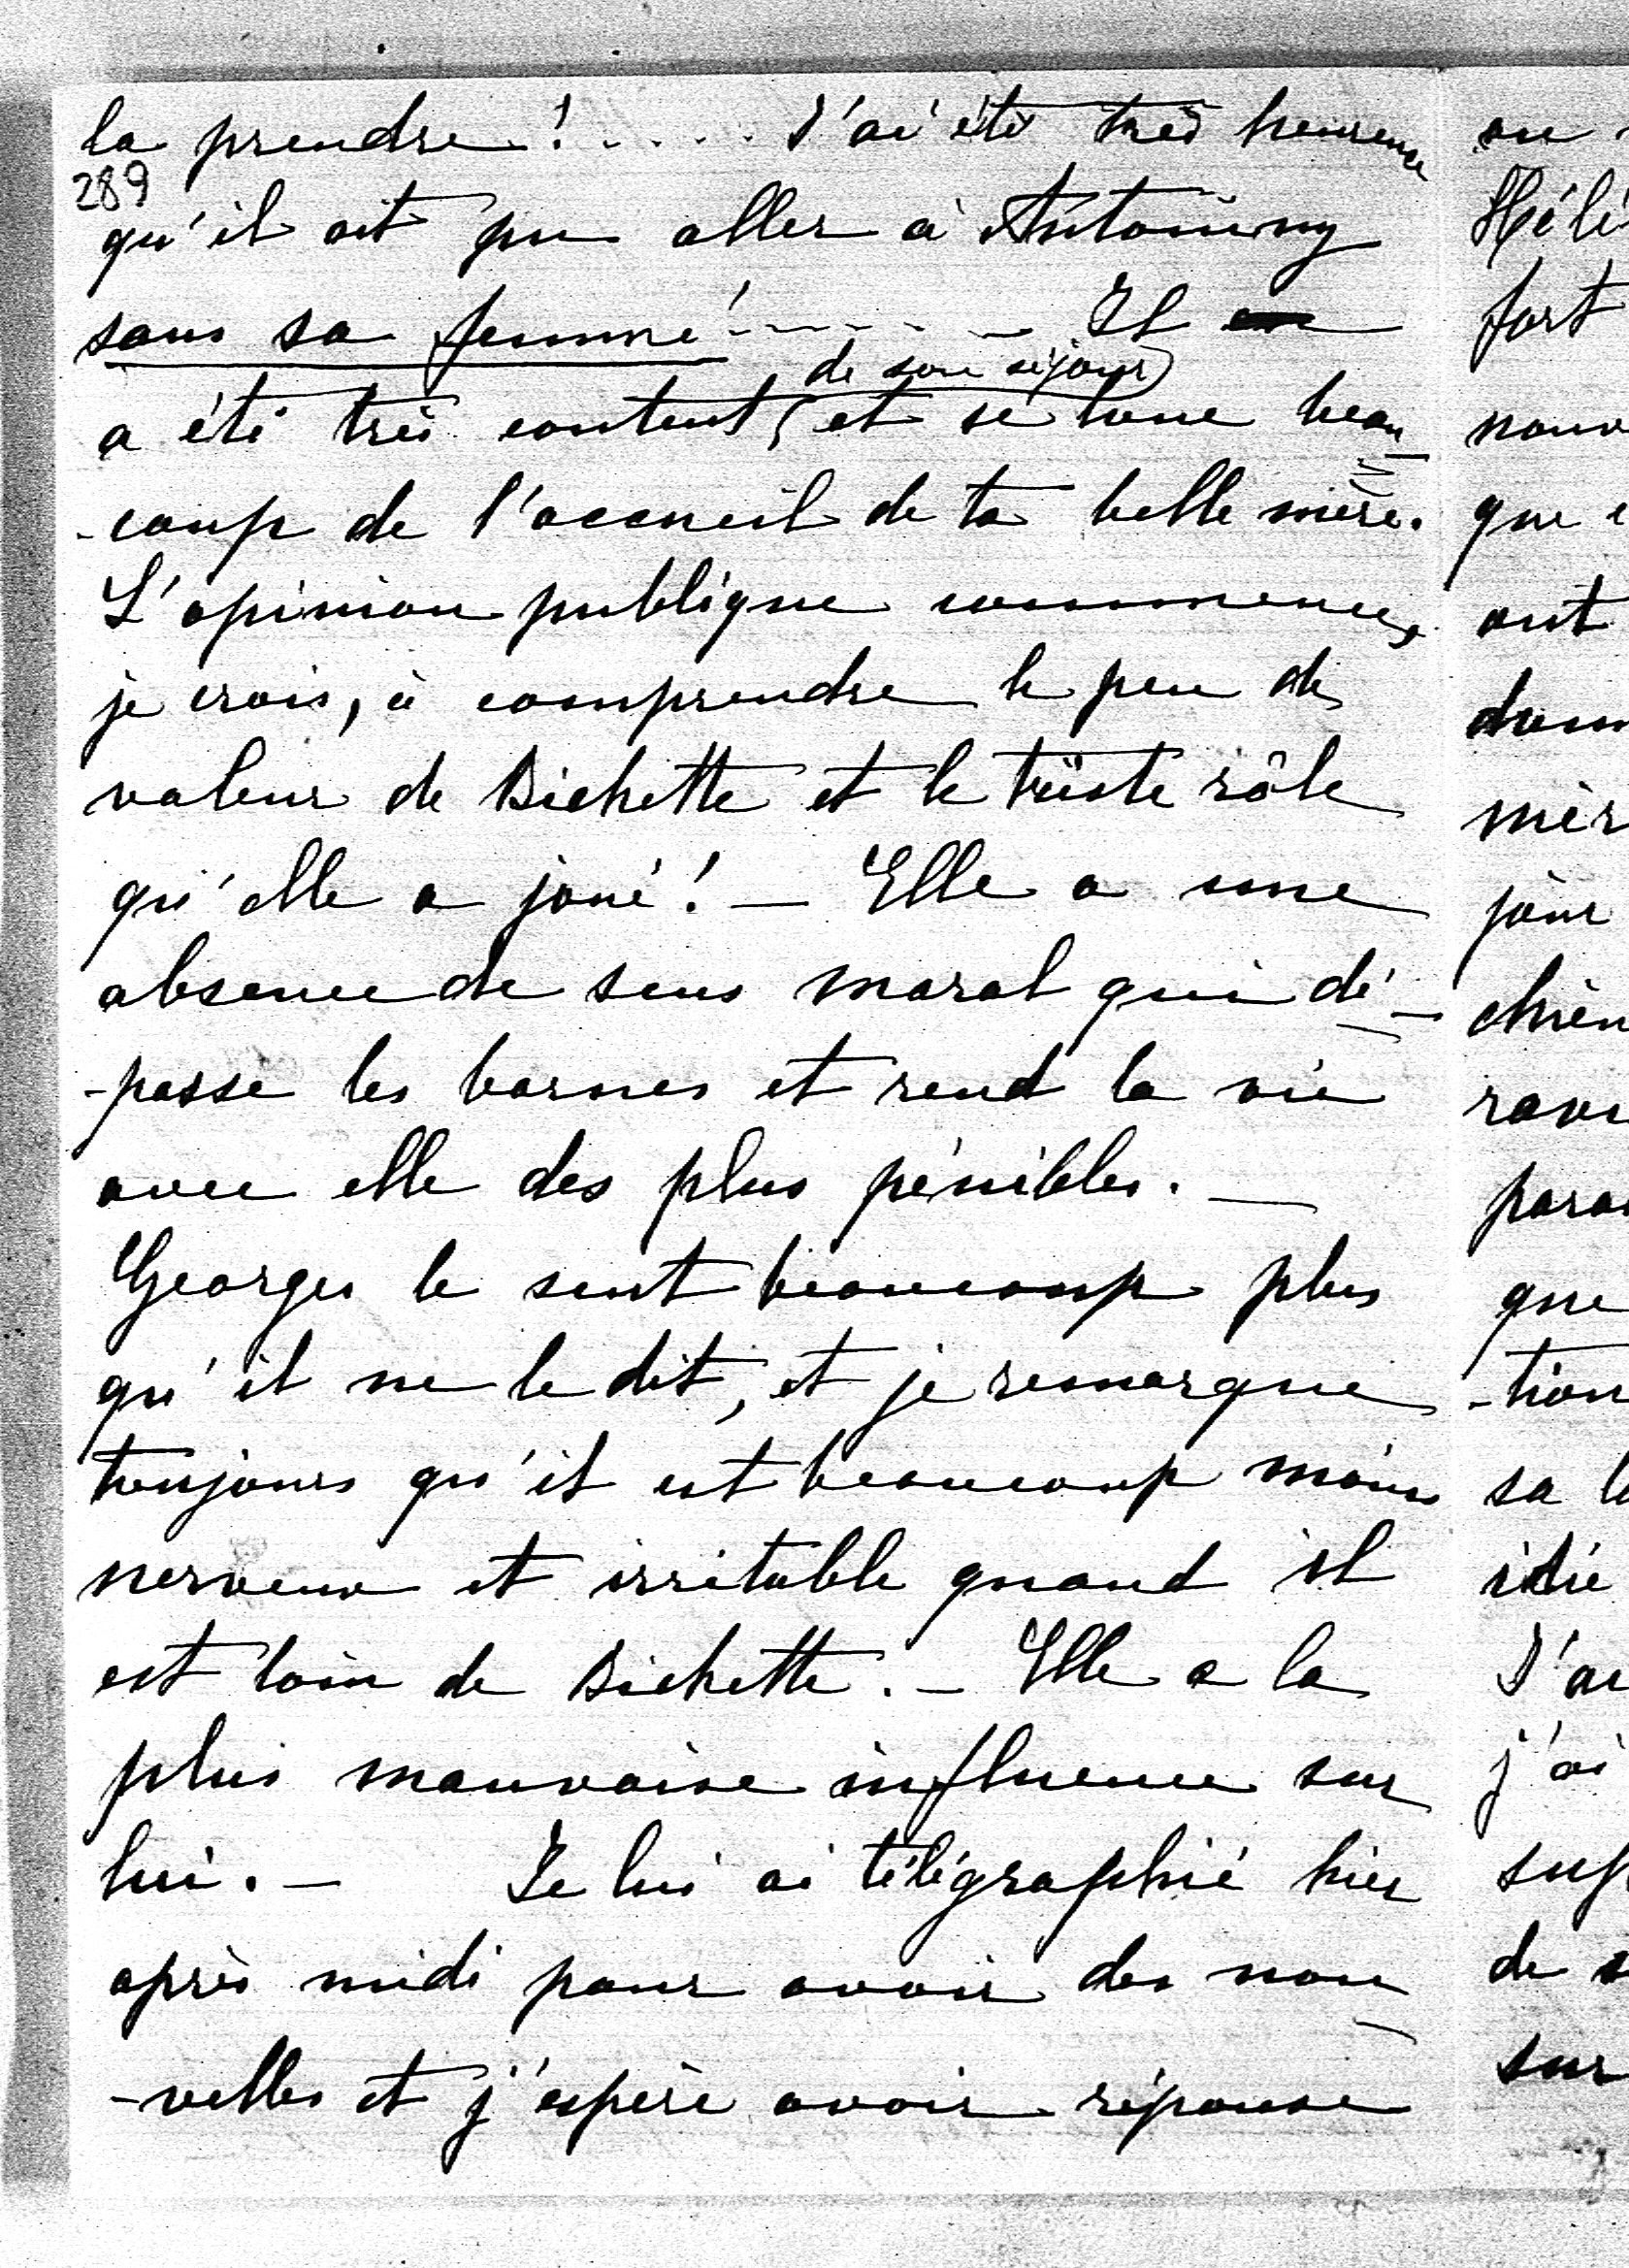 la prendre ! ..... J'ai été très heureuse
289
qu'il ait pu aller à Antoigny
sans sa femme ! ------ Il
de son séjour
a été très content, et se loue beau-
-coup de l'accueil de ta belle mère.
L'opinion publique commence,
je crois, à comprendre le peu de
valeur de Bichette et le triste rôle
qu'elle a joué ! — Elle a une
absence de sens moral qui dé-
-passe les bornes et rend la vie
avec elle des plus pénibles. —
Georges le sent beaucoup plus
qu'il ne le dit, et je remarque
toujours qu'il est beaucoup moins
nerveux et irritable quand il
est loin de Bichette. — Elle a la
plus mauvaise influence sur
lui. — Je lui ai télégraphié hier
après midi pour avoir des nou-
-velles et j'espère avoir réponse
ou
Hélè
fort
nouv
que
ont
donn
mèr
jour
chien
ravi
parai
que
-tion
sa
idée
J'ai
j'ai
sup
de
sur